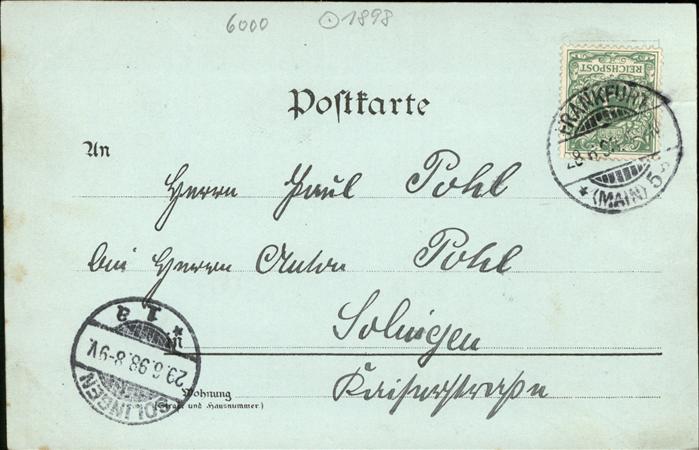 6000 1898
REICHSPOST
Postkarte
FRANKFURT
(MAIN) 5
An
Herrn Paul Pohl
bei Herrn Anton Pohl
1 a
in Solingen
29.6.98.8-9V.
SOLINGEN
Kaiserstraße
Wohnung
(Straße und Hausnummer.)